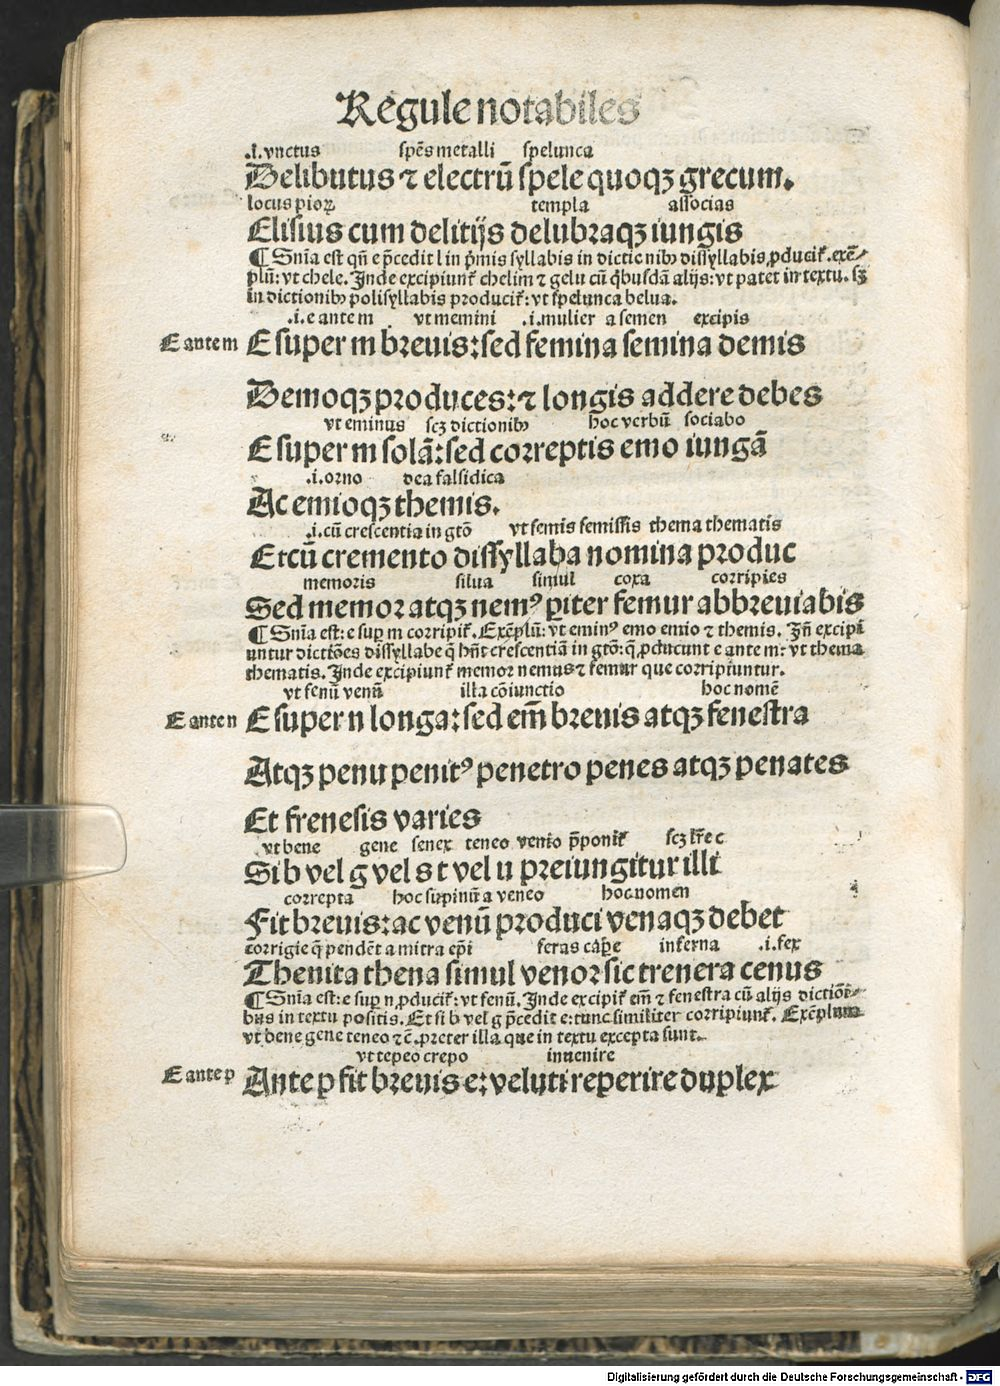 Regule notabiles
.i. vnctus spēs metalli spelunca
Delibutus ⁊ electrū spele quoqꝫ grecum.
locus pioꝝ templa associas
Elisius cum delitijs delubraqꝫ iungis
¶ Snīa est qn̄ e p̄cedit l in p̄mis syllabis in dictionibꝫ dissyllabis, ꝓducit᷑. exē⸗
plū: vt chele. Inde excipiunt᷑ chelim ⁊ gelu cū qͥbusdā alijs: vt patet in textu. sꝫ
in dictionibꝫ polisyllabis producit᷑: vt spelunca belua.
.i. e ante m vt memini .i. mulier a semen excipis
E ante m E super m breuis: sed femina semina demis
Demoqꝫ produces: ⁊ longis addere debes
vt eminus scꝫ dictionibꝫ hoc verbū sociabo
E super m solā: sed correptis emo iungā
.i. orno dea falsidica
Ac emioqꝫ themis.
.i. cū crescentia in gtō vt semis semissis thema thematis
Et cū cremento dissyllaba nomina produc
memoris silua simul coxa corripies
Sed memor atqꝫ nemꝰ ꝑiter femur abbreuiabis
¶ Snīa est: e suꝑ m corripit᷑. Exēplū: vt eminꝰ emo emio ⁊ themis. In̄ excipi
untur dictiōes dissyllabe q̄ hn̄t crescentiā in gtō: q̄ ꝓducunt e ante m: vt thema
thematis. Inde excipiunt᷑ memor nemus ⁊ femur que corripiuntur.
vt fenū venū illa cōiunctio hoc nomē
E ante n E super n longa: sed em̄ breuis atqꝫ fenestra
Atqꝫ penu penitꝰ penetro penes atqꝫ penates
Et frenesis varies
vt bene gene senex teneo venio p̄ponit᷑ scꝫ lr̄e e
Si b vel g vel s t vel u preiungitur illi
correpta hoc supinū a veneo hoc nomen
Fit breuis: ac venū produci venaqꝫ debet
corrigie q̄ pendēt a mitra ep̄i feras caꝑe inferna .i. fex
Thenita thena simul venor sic trenera cenus
¶ Snīa est: e suꝑ n ꝓducit᷑: vt fenū. Inde excipit᷑ em̄ ⁊ fenestra cū alijs dictiōi⸗
bus in textu positis. Et si b vel g p̄cedit e: tunc similiter corripiunt᷑. Exēplum
vt bene gene teneo ⁊c̄. preter illa que in textu excepta sunt.
vt tepeo crepo inuenire
E ante p Ante p fit breuis e: veluti reperire duplex
Digitalisierung gefördert durch die Deutsche Forschungsgemeinschaft - DFG